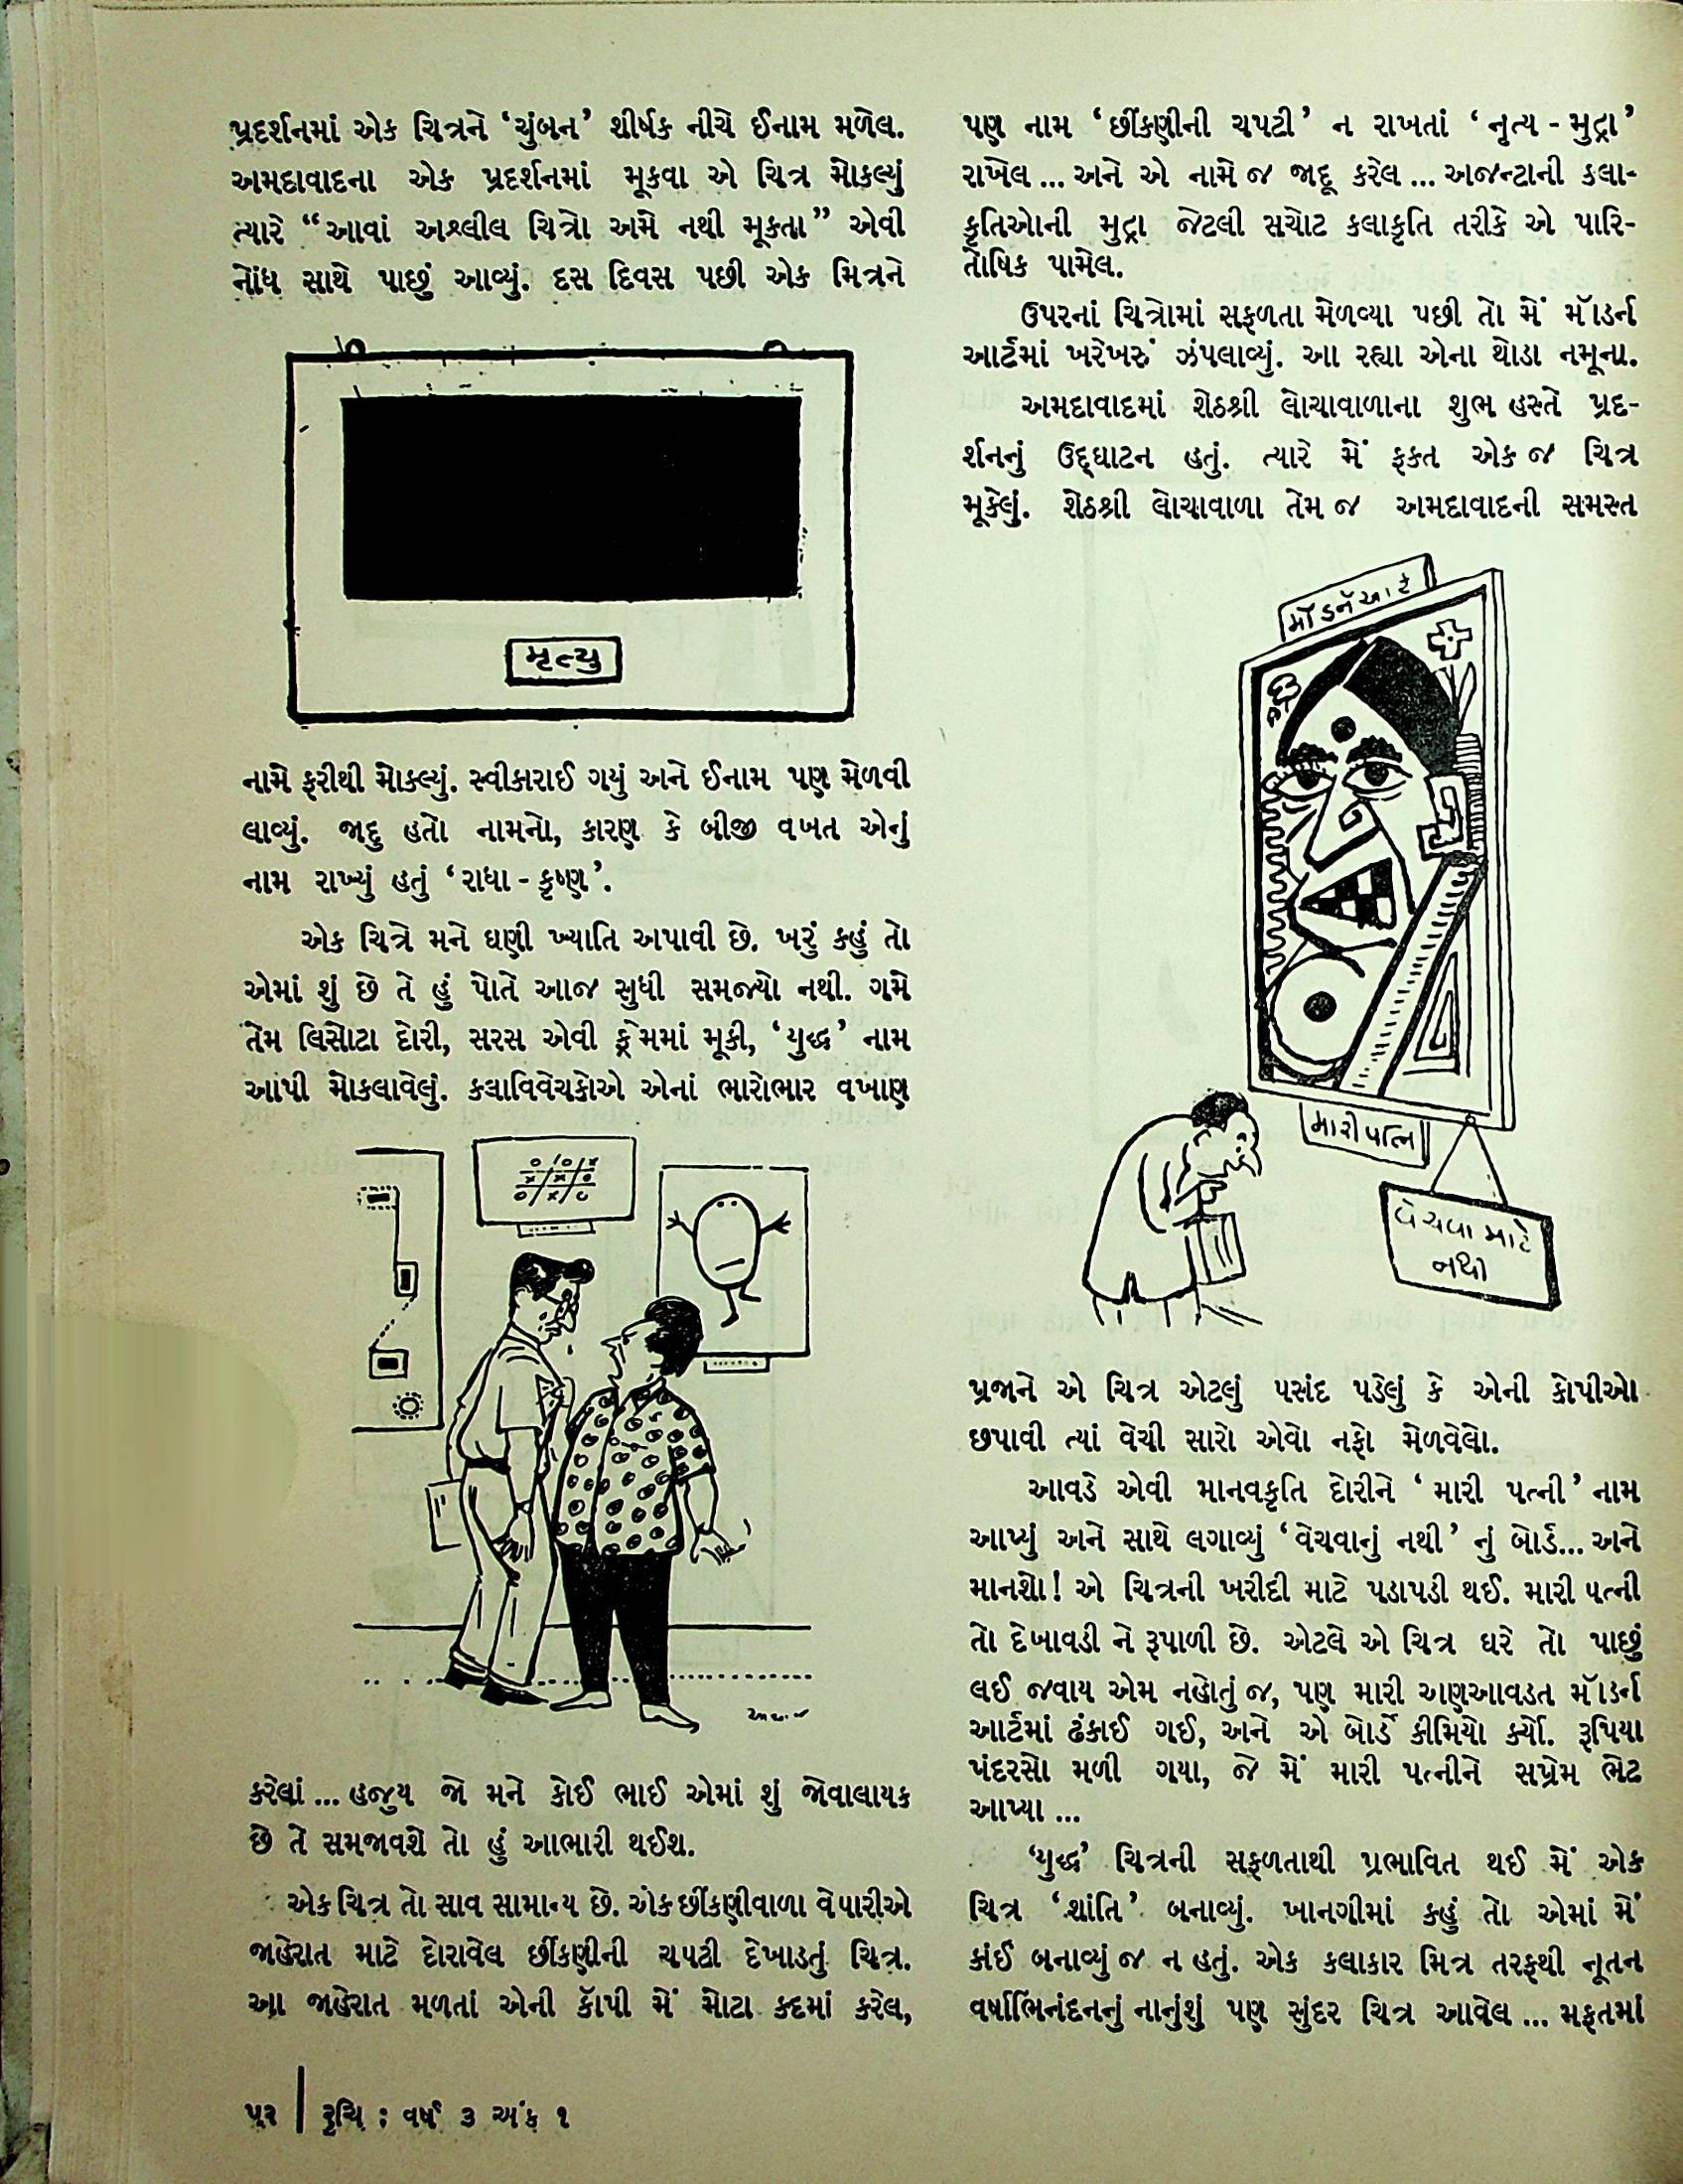 પ્રદર્શનમાં એક ચિત્રને ‘ચુંબન’ શીર્ષક નીચે ઈનામ મળેલ.
અમદાવાદના એક પ્રદર્શનમાં મૂકવા એ ચિત્ર મોકલ્યું
ત્યારે “આવાં અશ્લીલ ચિત્રો અમે નથી મૂકતા” એવી
નોંધ સાથે પાછું આવ્યું. દસ દિવસ પછી એક મિત્રને
મૃત્યુ
નામે ફરીથી મોકલ્યું. સ્વીકારાઈ ગયું અને ઈનામ પણ મેળવી
લાવ્યું. જાદુ હતો નામનો, કારણ કે બીજી વખત એનું
નામ રાખ્યું હતું ‘રાધા - કૃષ્ણ’.
એક ચિત્રે મને ઘણી ખ્યાતિ અપાવી છે. ખરું કહું તો
એમાં શું છે તે હું પોતે આજ સુધી સમજ્યો નથી. ગમે
તેમ લિસોટા દોરી, સરસ એવી ફ્રેમમાં મૂકી, ‘યુદ્ધ’ નામ
આપી મોકલાવેલું. કલાવિવેચકોએ એનાં ભારોભાર વખાણ
કરેલાં ... હજુય જો મને કોઈ ભાઈ એમાં શું જોવાલાયક
છે તે સમજાવશે તો હું આભારી થઈશ.
એક ચિત્ર તો સાવ સામાન્ય છે. એક છીંકણીવાળા વેપારીએ
જાહેરાત માટે દોરાવેલ છીંકણીની ચપટી દેખાડતું ચિત્ર.
આ જાહેરાત મળતાં એની કૉપી મેં મોટા કદમાં કરેલ,
પણ નામ ‘છીંકણીની ચપટી’ ન રાખતાં ‘નૃત્ય - મુદ્રા’
રાખેલ ... અને એ નામે જ જાદૂ કરેલ ... અજન્ટાની કલા-
કૃતિઓની મુદ્રા જેટલી સચોટ કલાકૃતિ તરીકે એ પારિ-
તોષિક પામેલ.
ઉપરનાં ચિત્રોમાં સફળતા મેળવ્યા પછી તો મેં મૉડર્ન
આર્ટમાં ખરેખરું ઝંપલાવ્યું. આ રહ્યા એના થોડા નમૂના.
અમદાવાદમાં શેઠશ્રી લોચાવાળાના શુભ હસ્તે પ્રદ-
ર્શનનું ઉદ્ઘાટન હતું. ત્યારે મેં ફક્ત એક જ ચિત્ર
મૂકેલું. શેઠશ્રી લોચાવાળા તેમ જ અમદાવાદની સમસ્ત
મૉડર્ન આર્ટ
મારી પત્નિ
વેચવા માટે
નથી
પ્રજાને એ ચિત્ર એટલું પસંદ પડેલું કે એની કોપીઓ
છપાવી ત્યાં વેચી સારો એવો નફો મેળવેલો.
આવડે એવી માનવકૃતિ દોરીને ‘મારી પત્ની’ નામ
આપ્યું અને સાથે લગાવ્યું ‘વેચવાનું નથી’ નું બોર્ડ... અને
માનશો! એ ચિત્રની ખરીદી માટે પડાપડી થઈ. મારી પત્ની
તો દેખાવડી ને રૂપાળી છે. એટલે એ ચિત્ર ઘરે તો પાછું
લઈ જવાય એમ નહોતું જ, પણ મારી અણઆવડત મૉડર્ન
આર્ટમાં ઢંકાઈ ગઈ, અને એ બોર્ડે કીમિયો કર્યો. રૂપિયા
પંદરસો મળી ગયા, જે મેં મારી પત્નીને સપ્રેમ ભેટ
આપ્યા ...
‘યુદ્ધ’ ચિત્રની સફળતાથી પ્રભાવિત થઈ મેં એક
ચિત્ર ‘શાંતિ’ બનાવ્યું. ખાનગીમાં કહું તો એમાં મેં
કાંઈ બનાવ્યું જ ન હતું. એક કલાકાર મિત્ર તરફથી નૂતન
વર્ષાભિનંદનનું નાનુંશું પણ સુંદર ચિત્ર આવેલ ... મફતમાં
૫૨ | રૃચિ : વર્ષ ૩ અંક ૧